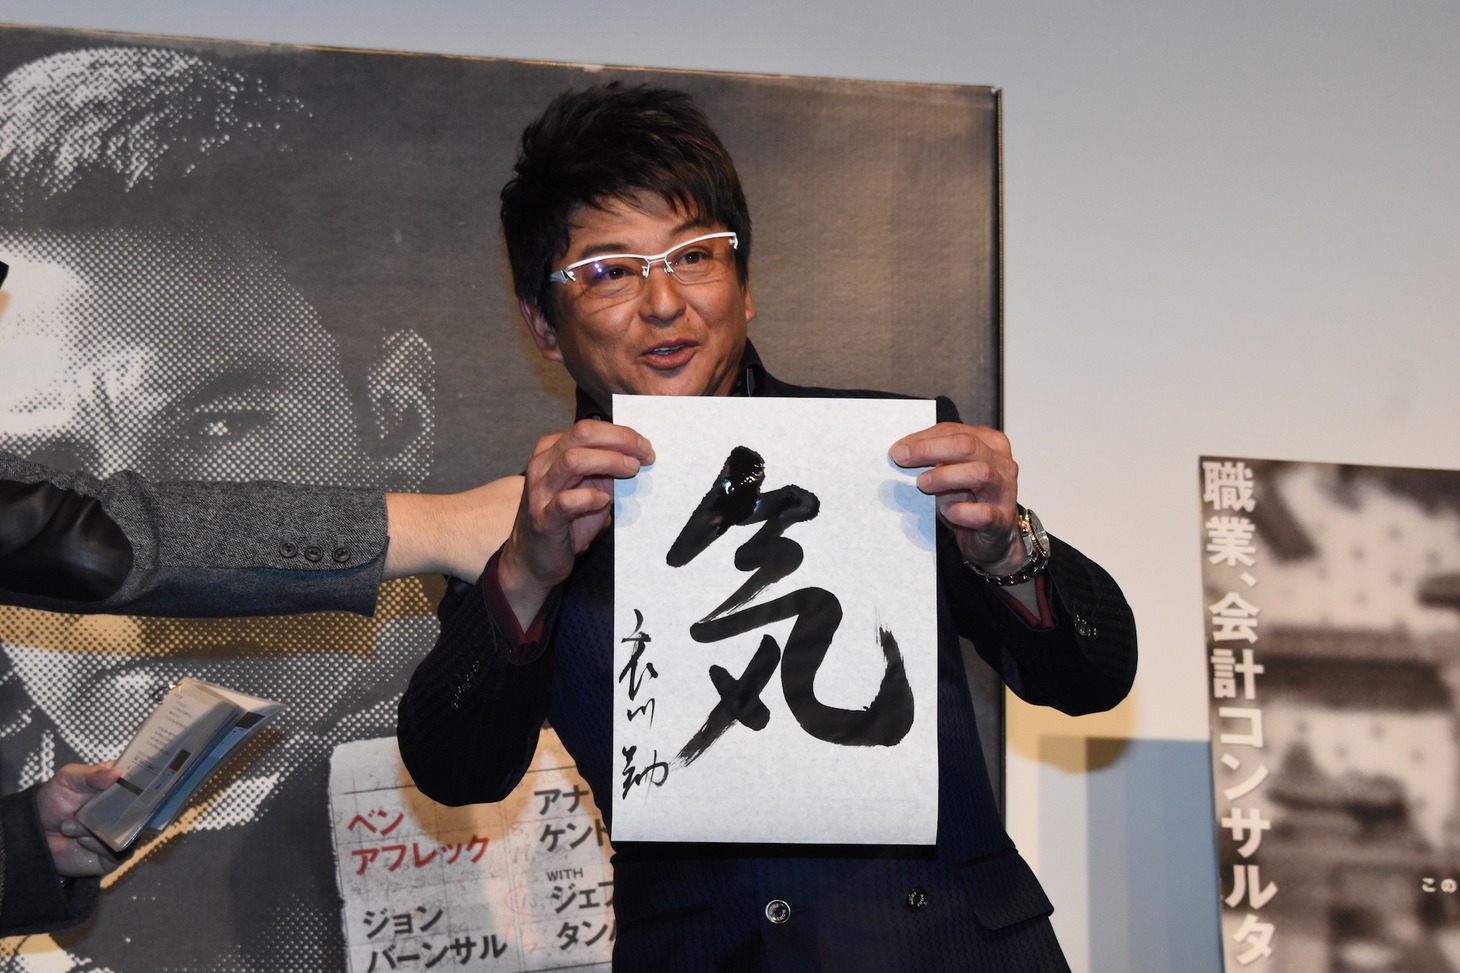 気
哀川翔
ベン
アフレック
アナ
ケンド
ジョン
バーンサル
WITH
ジェフ
タン
職業、会計コンサルタ
この